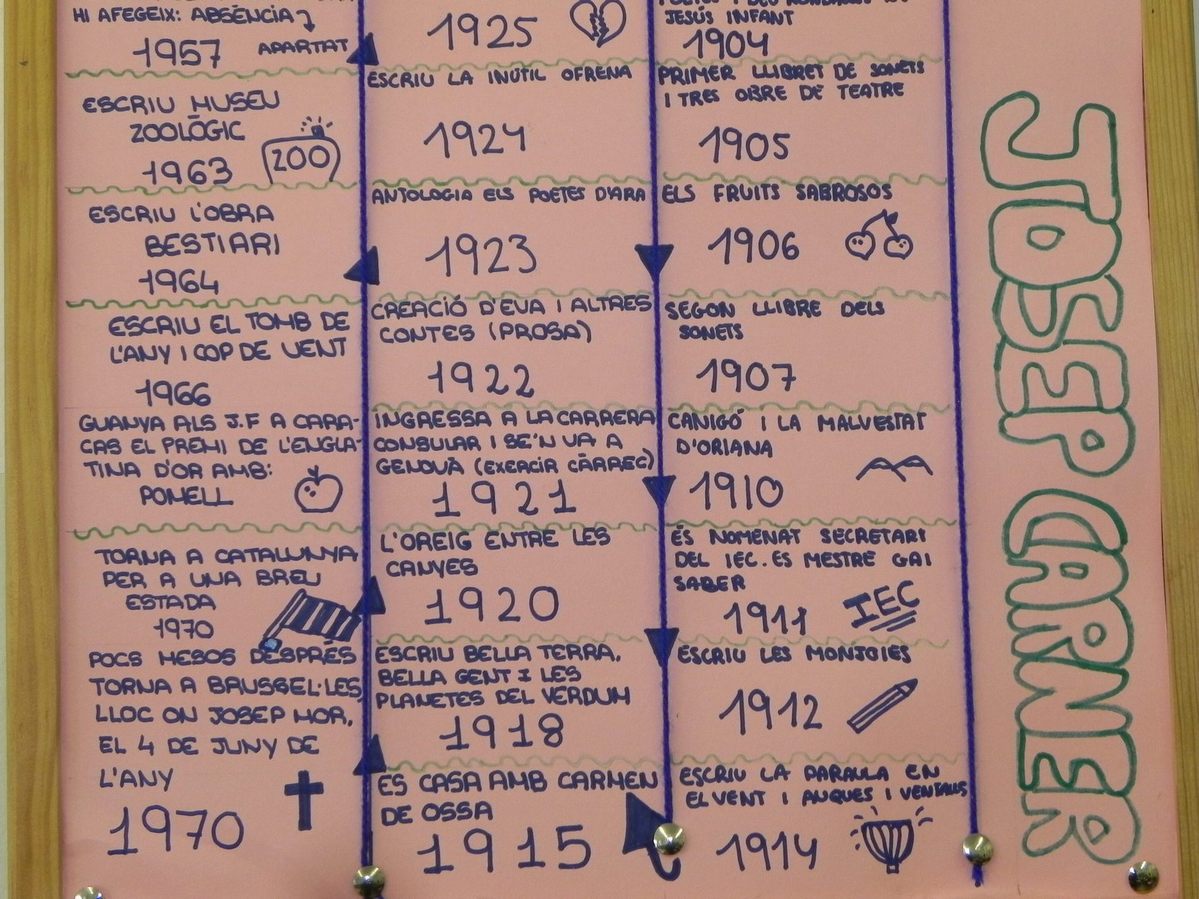 HI AFEGEIX: ABSÈNCIA
1957 APARTAT
ESCRIU MUSEU
ZOOLÒGIC
1963 ZOO
ESCRIU L'OBRA
BESTIARI
1964
ESCRIU EL TOMB DE
L'ANY I COP DE VENT
1966
GUANYA ALS J.F A CARA-
CAS EL PREMI DE L'ENGLA-
TINA D'OR AMB:
POMELL
TORNA A CATALUNYA
PER A UNA BREU
ESTADA
1970
POCS MESOS DESPRÉS
TORNA A BRUSSEL·LES
LLOC ON JOSEP MOR,
EL 4 DE JUNY DE
L'ANY
1970
1925
ESCRIU LA INÚTIL OFRENA
1924
ANTOLOGIA ELS POETES D'ARA
1923
CREACIÓ D'EVA I ALTRES
CONTES (PROSA)
1922
INGRESSA A LA CARRERA
CONSULAR I SE'N VA A
GENOVÀ (EXERCIR CÀRREC)
1921
L'OREIG ENTRE LES
CANYES
1920
ESCRIU BELLA TERRA,
BELLA GENT I LES
PLANETES DEL VERDUM
1918
ES CASA AMB CARMEN
DE OSSA
1915
JESÚS INFANT
1904
PRIMER LLIBRET DE SONETS
I TRES OBRE DE TEATRE
1905
ELS FRUITS SABROSOS
1906
SEGON LLIBRE DELS
SONETS
1907
CANIGÓ I LA MALVESTAT
D'ORIANA
1910
ÉS NOMENAT SECRETARI
DEL IEC. ES MESTRE GAI
SABER
1911 IEC
ESCRIU LES MONJOIES
1912
ESCRIU LA PARAULA EN
EL VENT I AUQUES I VENTALLS
1914
JOSEP CARNER